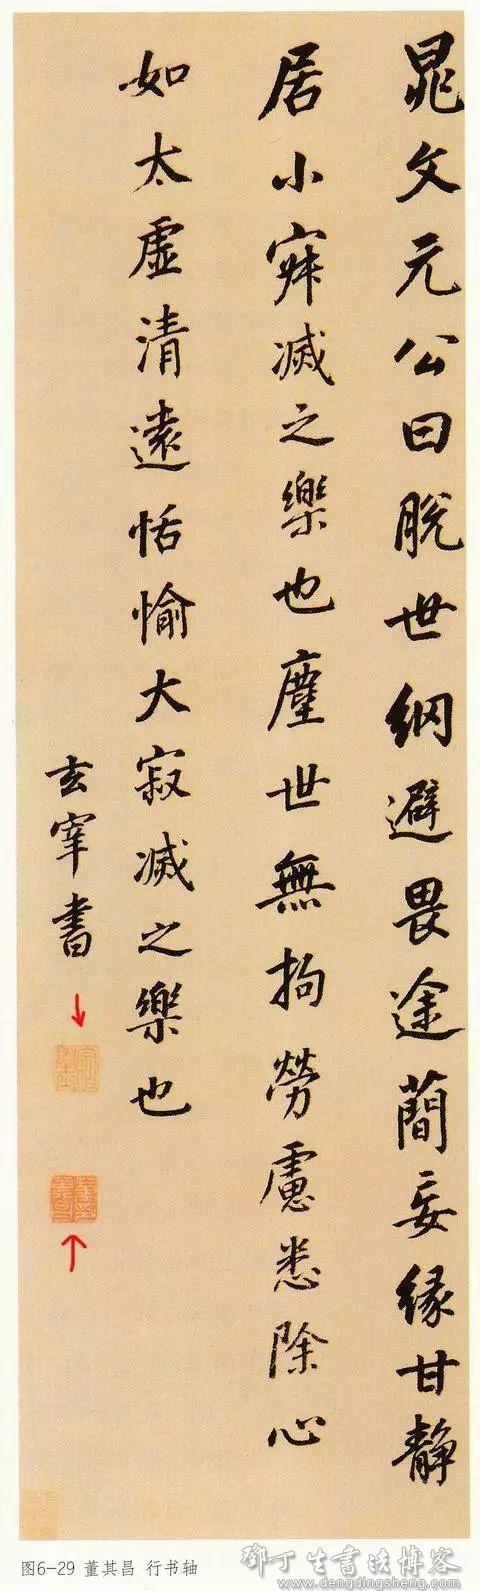 晁文元公曰脫世網避畏途蕳妄縁甘静
居小寂滅之樂也塵世無拘勞慮悉除心
如太虛清遠恬愉大寂滅之樂也
玄宰書
图6-29 董其昌 行书轴
鄧丁生書法博客
www.dengdingsheng.com